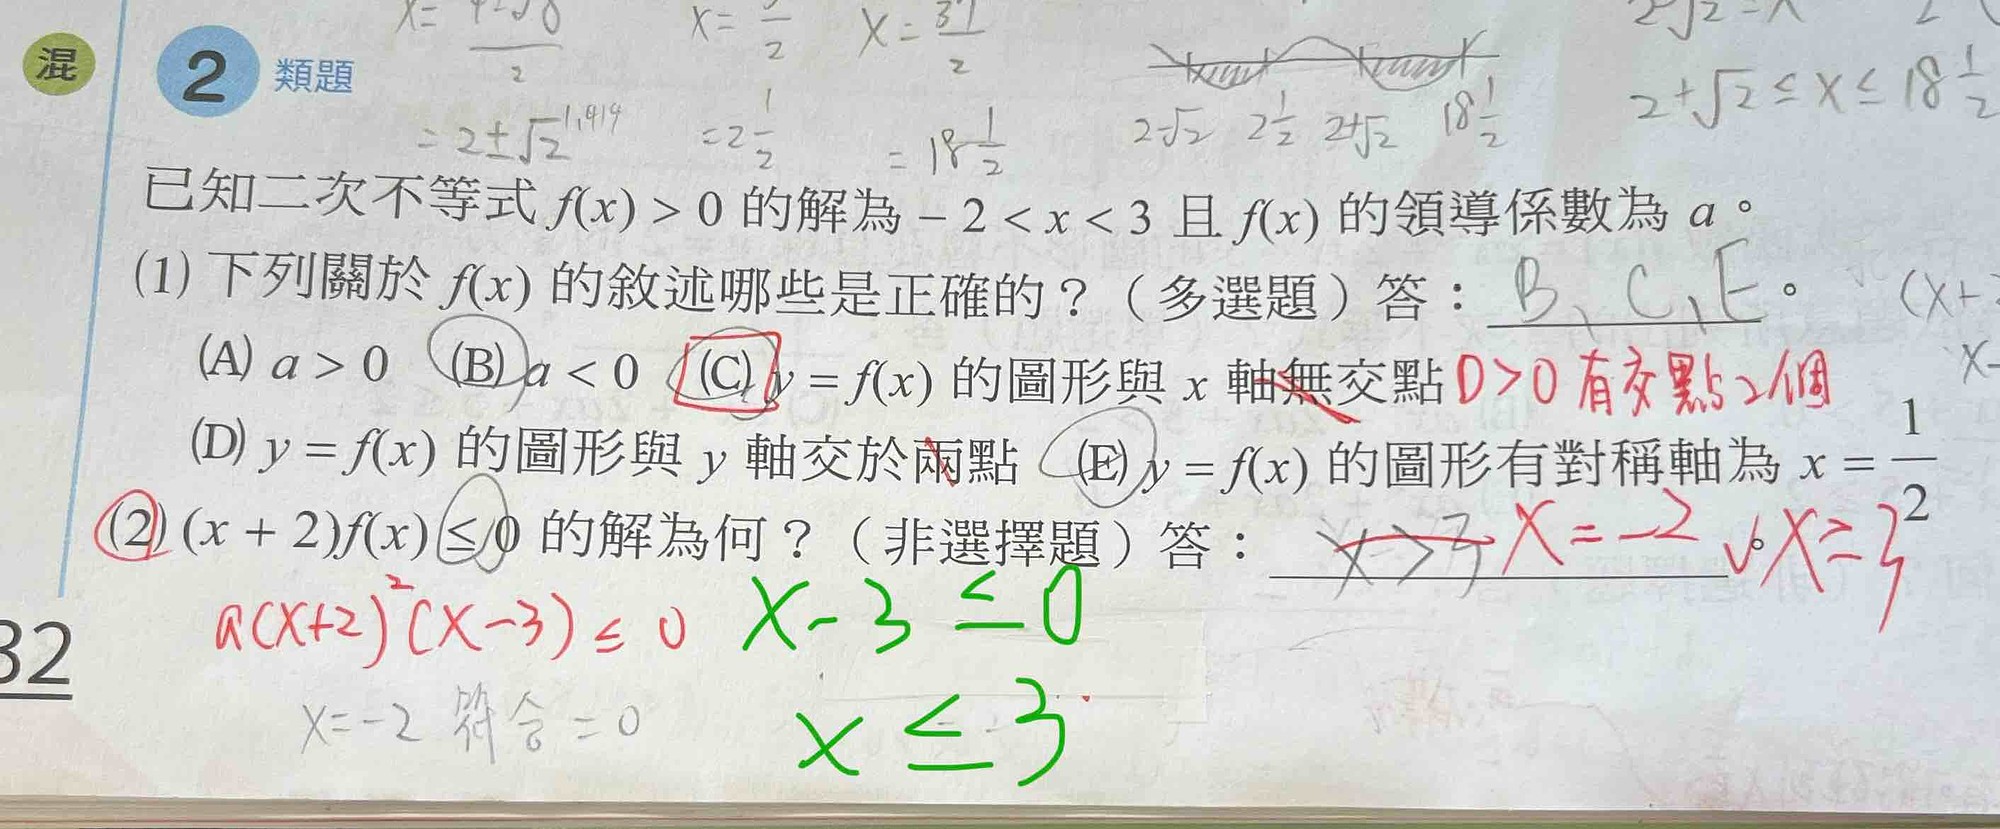 x = 5/2 x = 37/2
2-√2 = x
混 2 類題
= 2±√2 1.414 = 2 1/2 = 18 1/2
2-√2 2 1/2 2+√2 18 1/2
2+√2 ≤ x ≤ 18 1/2
已知二次不等式 f(x) > 0 的解為 – 2 < x < 3 且 f(x) 的領導係數為 a。
(1) 下列關於 f(x) 的敘述哪些是正確的？（多選題）答： B、C、E 。
(A) a > 0 (B) a < 0 (C) y = f(x) 的圖形與 x 軸無交點 D>0 有交點2個
(D) y = f(x) 的圖形與 y 軸交於兩點 (E) y = f(x) 的圖形有對稱軸為 x = 1/2
(2) (x + 2)f(x) ≤ 0 的解為何？（非選擇題）答： x>3 x=-2 ∨ x≥3 。
a(x+2)²(x-3) ≤ 0 x-3 ≤ 0
x=-2 符合=0 x ≤ 3
32